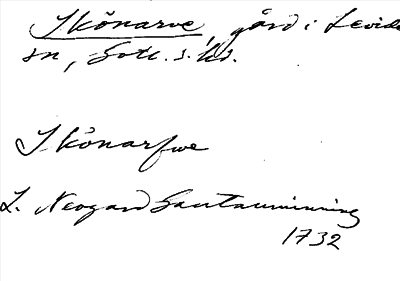 Skönarve, gård i Levide
sn, Gotl. s. hd.
Skönarfwe
L. Neogard Gautauminning
1732